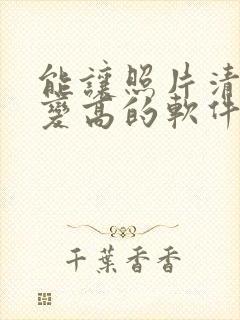 能讓照片清
變高的軟件
千葉香香